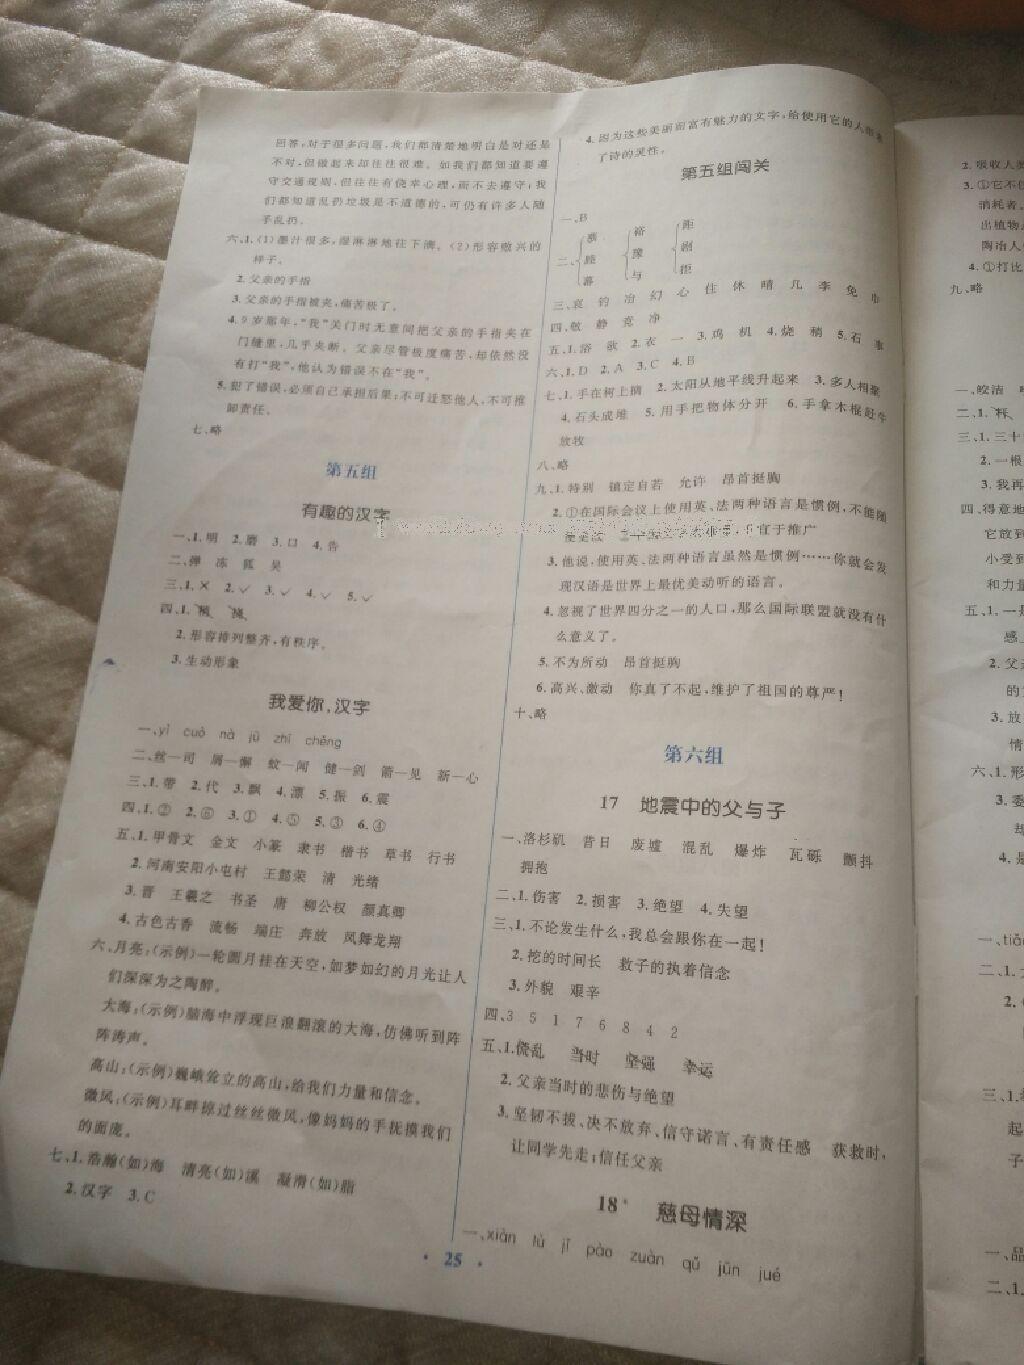 回答,对于很多问题,我们都清楚地明白是对还是
不对,但做起来却往往很难。如我们都知道要遵
守交通规则,但往往有侥幸心理,而不去遵守;我
们都知道乱扔垃圾是不道德的,可仍有许多人随
手乱扔。
六、1.(1)墨汁很多,湿淋淋地往下滴。(2)形容败兴的
样子。
2.父亲的手指
3.父亲的手指被夹,痛苦极了。
4.9岁那年,“我”关门时无意间把父亲的手指夹在
门缝里,几乎夹断。父亲尽管极度痛苦,却依然没
有打“我”,他认为错误不在“我”。
5.犯了错误,必须自己承担后果;不可迁怒他人,不可推
卸责任。
七、略
第五组
有趣的汉字
一、1.明 2.磨 3.口 4.告
二、弹 冻 狐 吴
三、1.× 2.✓ 3.✓ 4.✓ 5.✓
四、1.
2.形容排列整齐,有秩序。
3.生动形象
我爱你,汉字
一、yǐ cuò nà jū zhì chěng
二、丝—司 屑—懈 蚊—闻 健—剑 箭—见 新—心
三、1.带 2.代 3.飘 4.漂 5.振 6.震
四、1.② 2.⑥ 3.① 4.⑤ 5.③ 6.④
五、1.甲骨文 金文 小篆 隶书 楷书 草书 行书
2.河南安阳小屯村 王懿荣 清 光绪
3.晋 王羲之 书圣 唐 柳公权 颜真卿
4.古色古香 流畅 端庄 奔放 凤舞龙翔
六、月亮:(示例)一轮圆月挂在天空,如梦如幻的月光让人
们深深为之陶醉。
大海:(示例)脑海中浮现巨浪翻滚的大海,仿佛听到阵
阵涛声。
高山:(示例)巍峨耸立的高山,给我们力量和信念。
微风:(示例)耳畔掠过丝丝微风,像妈妈的手抚摸我们
的面庞。
七、1.浩瀚(如)海 清亮(如)溪 凝滑(如)脂
2.汉字 3.C
4.因为这些美丽而富有魅力的文字,给使用它的人
了诗的灵性。
第五组闯关
一、B
二、
裕 距
睦 豫 剧
幕 与 拒
三、哀 钓 冶 幻 心 住 休 晴 几 李 免
四、敏 静 竞 净
五、1.浴 欲 2.衣 一 3.鸡 机 4.烧 稍 5.石 事
六、1.D 2.A 3.C 4.B
七、1.手在树上摘 2.太阳从地平线升起来 3.多人相聚
4.石头成堆 5.用手把物体分开 6.手拿木棍赶牛
放牧
八、略
九、1.特别 镇定自若 允许 昂首挺胸
2.①在国际会议上使用英、法两种语言是惯例,不能随
便更改 宜于推广
3.他说,使用英、法两种语言虽然是惯例……你就会发
现汉语是世界上最优美动听的语言。
4.忽视了世界四分之一的人口,那么国际联盟就没有什
么意义了。
5.不为所动 昂首挺胸
6.高兴、激动 你真了不起,维护了祖国的尊严!
十、略
第六组
17 地震中的父与子
一、洛杉矶 昔日 废墟 混乱 爆炸 瓦砾 颤抖
拥抱
二、1.伤害 2.损害 3.绝望 4.失望
三、1.不论发生什么,我总会跟你在一起!
2.挖的时间长 救子的执着信念
3.外貌 艰辛
四、3 5 1 7 6 8 4 2
五、1.慌乱 当时 坚强 幸运
2.父亲当时的悲伤与绝望
3.坚韧不拔、决不放弃、信守诺言、有责任感 获救时,
让同学先走;信任父亲
18* 慈母情深
一、xiàn tù jī pào zuàn qǔ jūn jué
· 25 ·
2.吸收人
3.①它不仅
消耗者,
出植物
陶冶人
4.①打比
九、略
一、皎洁
二、1.杯
三、1.三十
2.一根
3.我再
四、得意地
它放到
小受到
和力量
五、1.一是
感上
2.父亲
的
3.放
情
六、1.形
3.委
4.是
一、tiāo
二、1.
2.
三、1.
起
子
一、品
二、1.